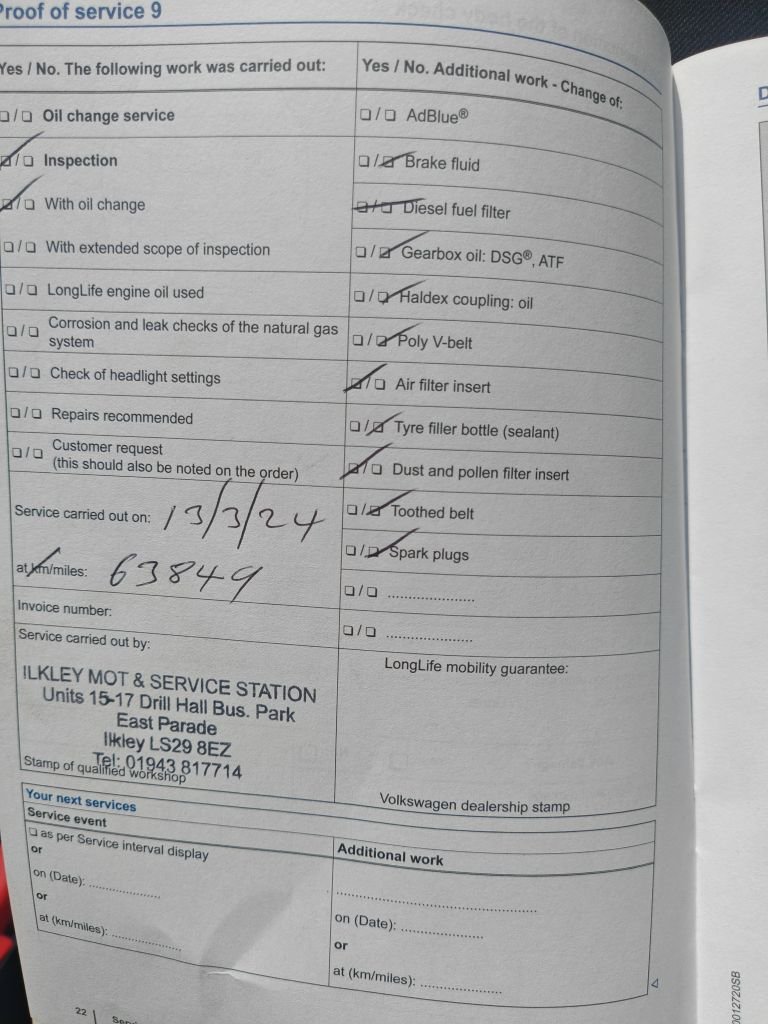 Proof of service 9
Yes / No. The following work was carried out:
☐/☐ Oil change service
☑/☐ Inspection
☑/☐ With oil change
☐/☐ With extended scope of inspection
☐/☐ LongLife engine oil used
☐/☐ Corrosion and leak checks of the natural gas
system
☐/☐ Check of headlight settings
☐/☐ Repairs recommended
☐/☐ Customer request
(this should also be noted on the order)
Service carried out on: 13/3/24
at km/miles: 63849
Invoice number:
Service carried out by:
ILKLEY MOT & SERVICE STATION
Units 15-17 Drill Hall Bus. Park
East Parade
Ilkley LS29 8EZ
Tel: 01943 817714
Stamp of qualified workshop
Yes / No. Additional work - Change of:
☐/☐ AdBlue®
☐/☑ Brake fluid
☐/☐ Diesel fuel filter
☐/☑ Gearbox oil: DSG®, ATF
☐/☑ Haldex coupling: oil
☐/☑ Poly V-belt
☑/☐ Air filter insert
☐/☑ Tyre filler bottle (sealant)
☑/☐ Dust and pollen filter insert
☐/☑ Toothed belt
☐/☑ Spark plugs
☐/☐ ....................
☐/☐ ....................
LongLife mobility guarantee:
Volkswagen dealership stamp
Your next services
Service event
☐ as per Service interval display
or
on (Date): ................
or
at (km/miles): ................
Additional work
........................................
on (Date): ..................
or
at (km/miles): ..................
22
0012720SB